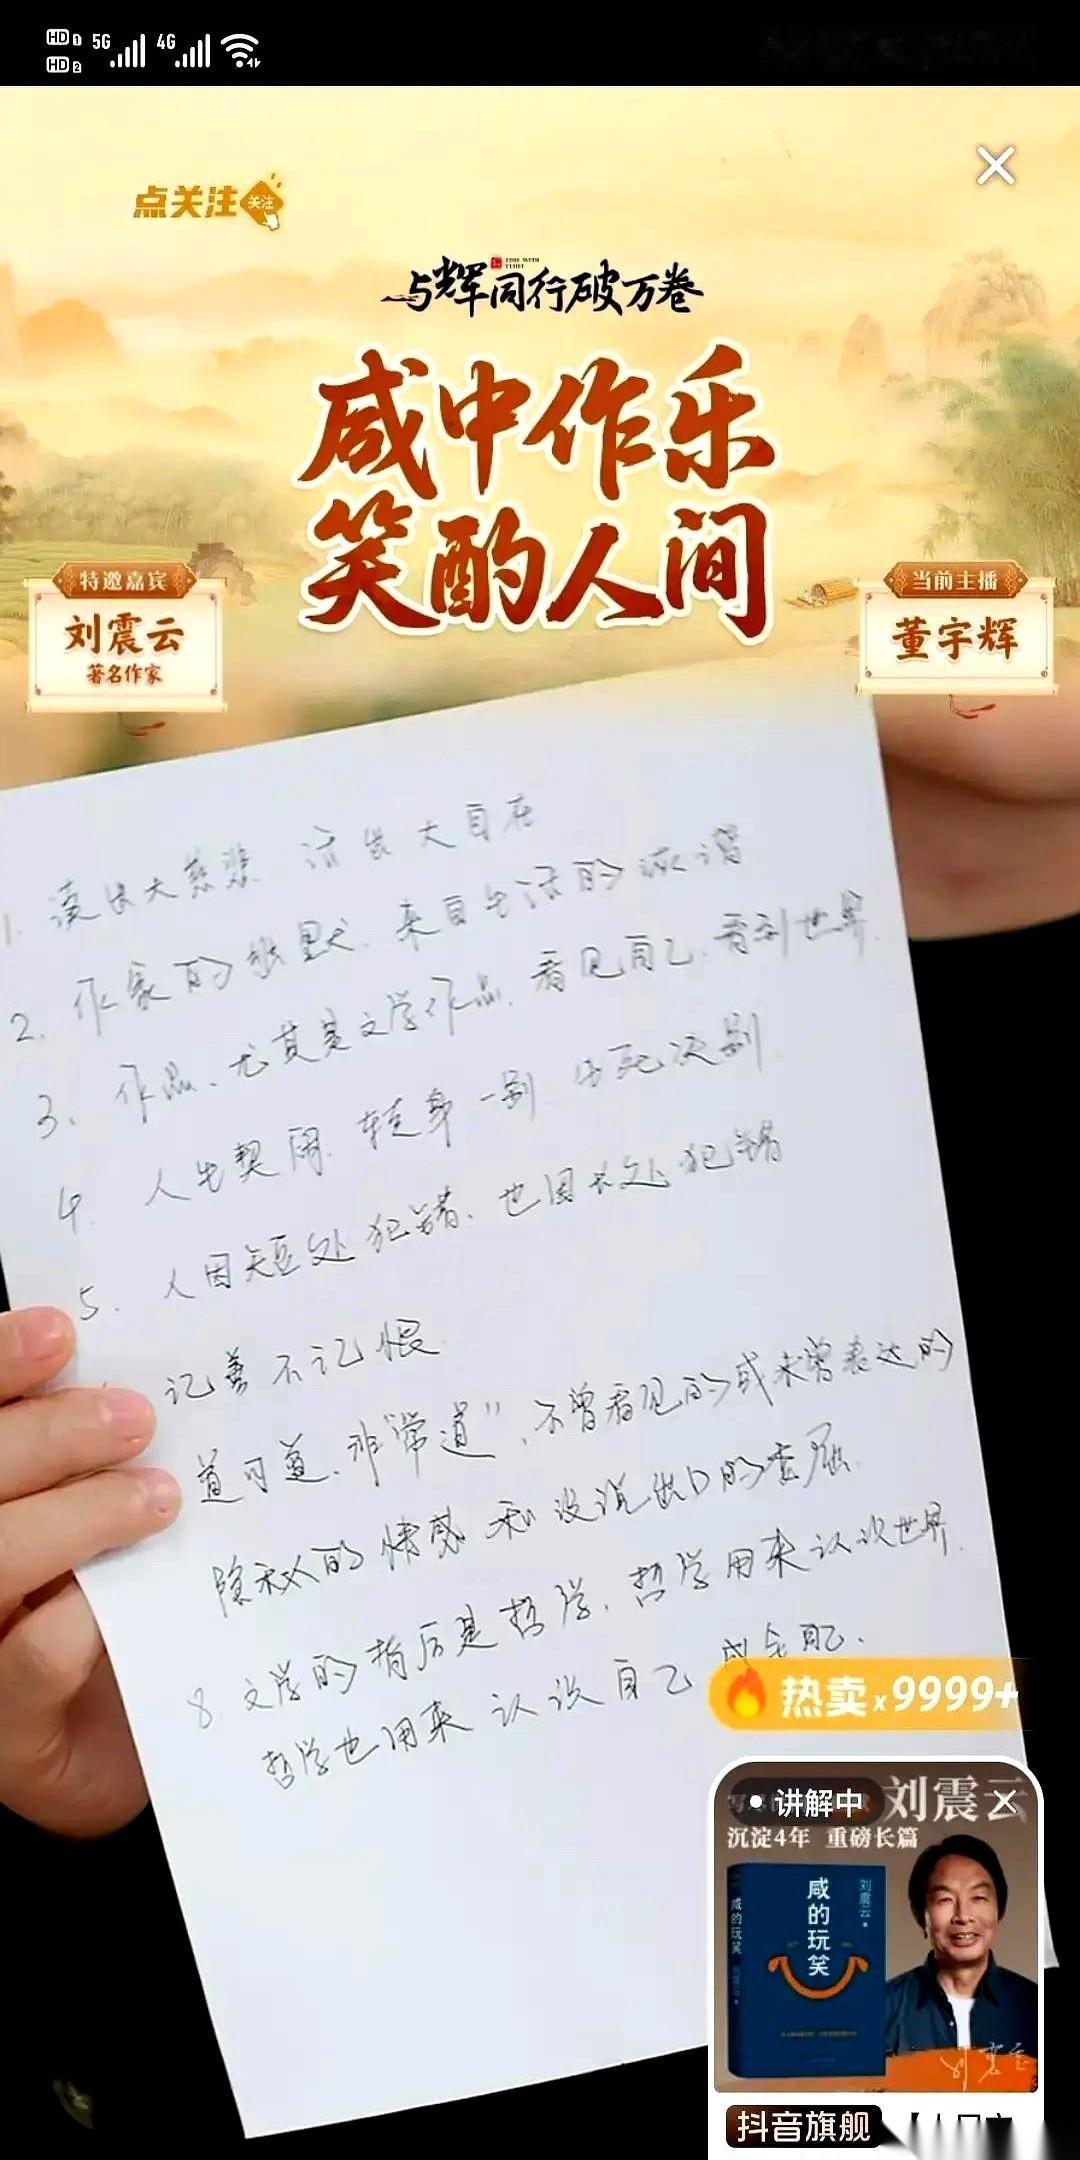 HD 1 5G 4G
HD 2
点关注 关注
与辉同行破万卷
TIME WITH YUHUI
咸中作乐
笑酌人间
特邀嘉宾
刘震云
著名作家
当前主播
董宇辉
1. 读出大慈悲 活出大自在
2. 作家的幽默、来自生活的诙谐
3、作品、尤其是文学作品、看见自己、看到世界.
4. 人生契阔、转身一别 生死决别.
5. 人因短处犯错、也因长处犯错
记善不记恨.
道可道、非“常道”、不曾看见的或未曾表达的
隐秘的情感 和没说出口的委屈.
8. 文学的背后是哲学、哲学用来认识世界.
哲学也用来认识自己
热卖x9999+
讲解中
刘震云
沉淀4年 重磅长篇
咸的玩笑
刘震云
咸的玩笑
刘震云
抖音旗舰